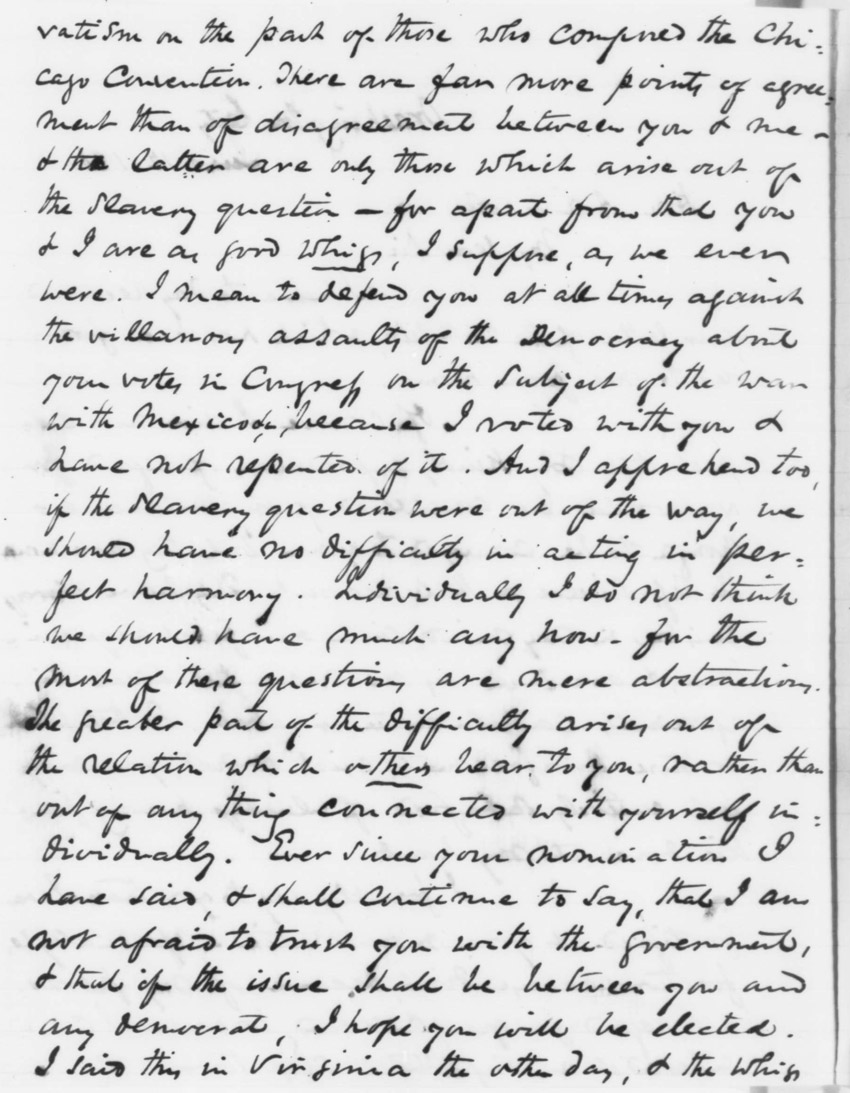 vatism on the part of those who composed the Chi-
cago Convention. There are far more points of agree-
ment than of disagreement between you & me -
& the latter are only those which arise out of
the slavery question - for apart from that you
& I are as good whigs, I suppose, as we ever
were. I mean to defend you at all times against
the villanous assaults of the Democracy about
your votes in Congress on the subject of the war
with Mexico, because I voted with you &
have not repented of it. And I apprehend too,
if the slavery question were out of the way, we
should have no difficulty in acting in per-
fect harmony. Individually I do not think
we should have much any how - for the
most of these questions are mere abstractions.
The greater part of the difficulty arises out of
the relation which others bear to you, rather than
out of any thing connected with yourself in-
dividually. Ever since your nomination I
have said, & shall continue to say, that I am
not afraid to trust you with the government,
& that if the issue shall be between you and
any democrat, I hope you will be elected.
I said this in Virginia the other day, & the whigs